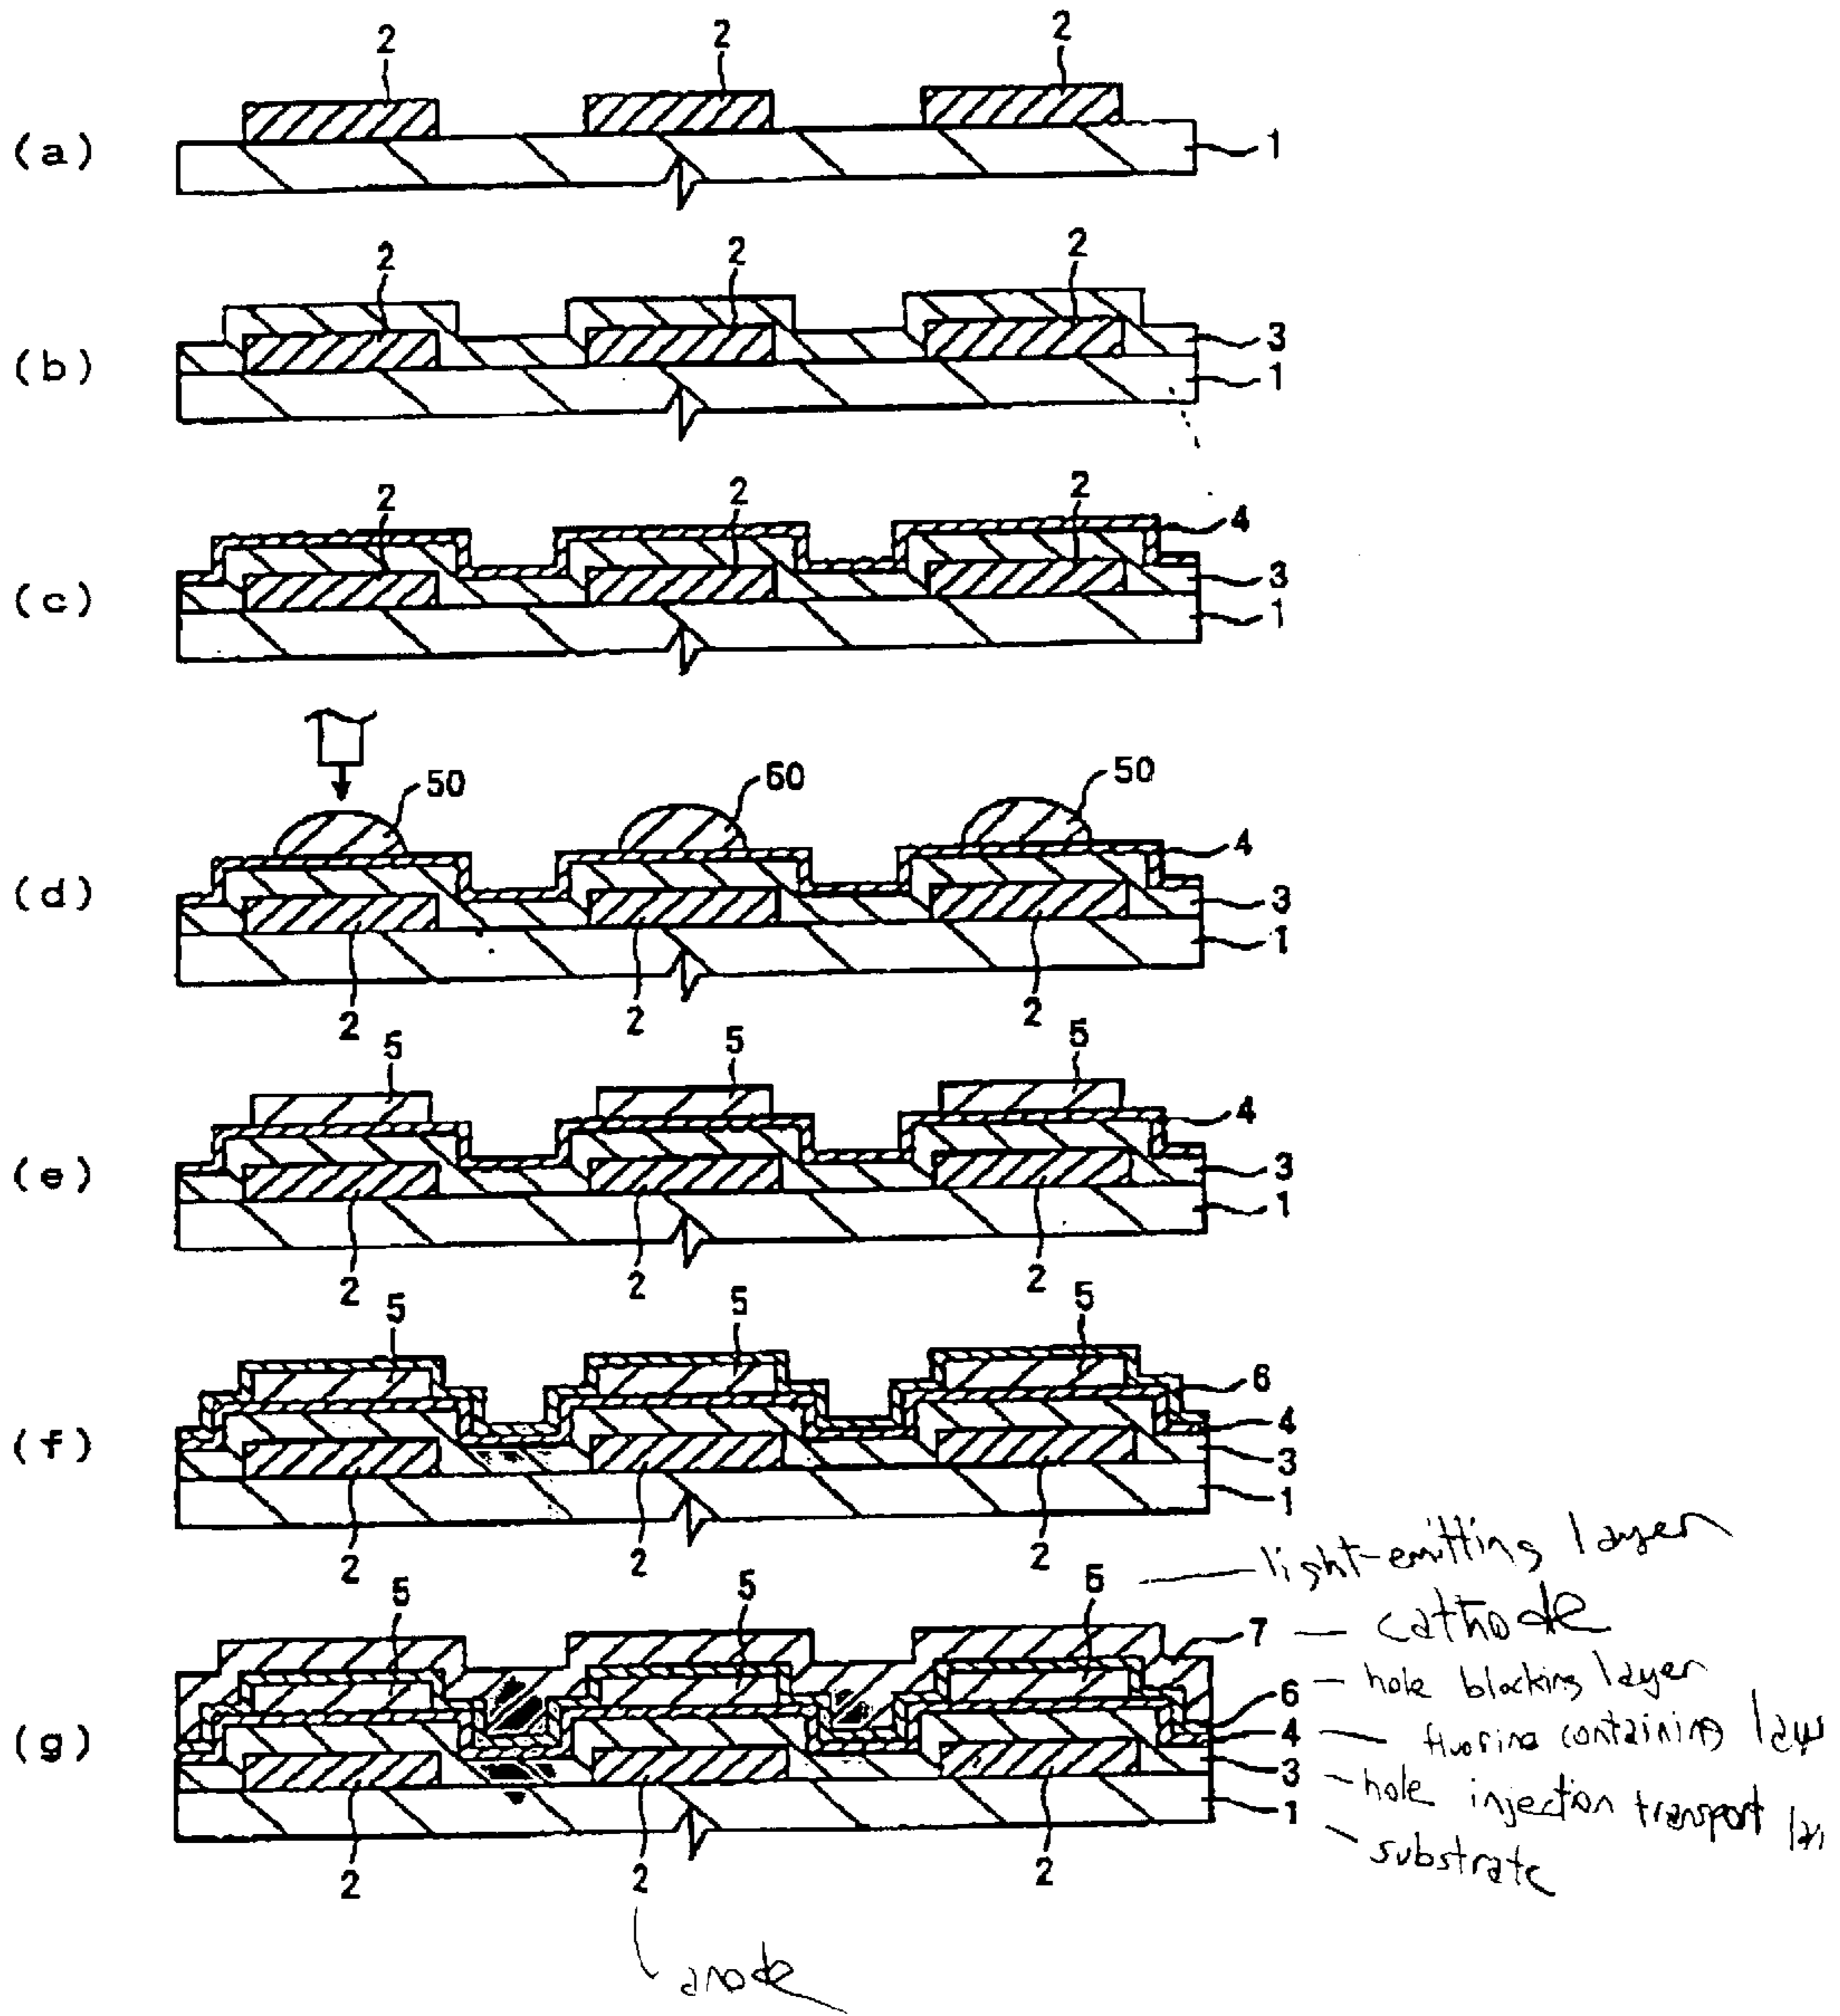 2 2 2
(a) 1
2 2 2
(b) 3
1
2 2 2
(c) 4
3
1
50 60 50
(d) 4
3
1
2 2 2
5 5 5
(e) 4
3
1
2 2 2
5 5 5
(f) 6
4
3
1
2 2 2
light-emitting layer
5 5 5
7 cathode
hole blocking layer
(g) 6
4 fluorine containing
3 hole injection transport
1
substrate
2 2 2
anode